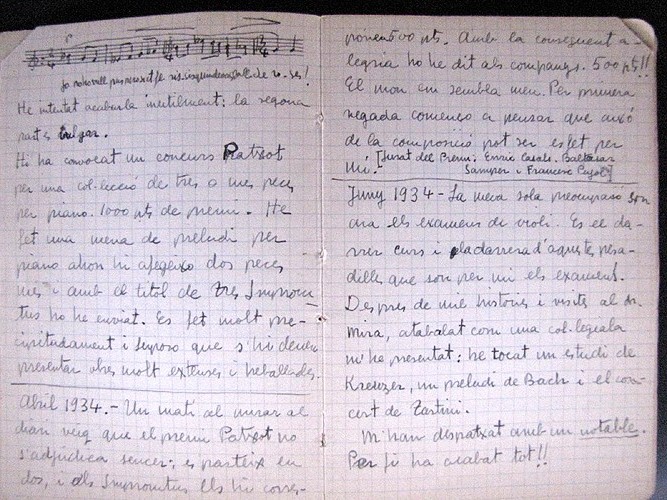 He intentat acabarla inutilment; la segona
part és vulgar.
Hi ha convocat un concurs Patxot
per una col·lecció de tres o mes peces
per piano. 1000 pts de premi. He
fet una mena de preludi per
piano ahon hi afegeixo dos peces
mes i amb el titol de Tres Impromp
tus ho he enviat. Es fet molt pre-
cipitadament i suposo que s'hi deuen
presentar obres molt extenses i treballades.
Abril 1934.- Un mati al mirar al
diari veig que el premi Patxot no
s'adjudica sencer; es parteix en
dos, i als Impromtus els hi corres-
ponen 500 pts. Amb la conseguent a-
legria ho he dit als companys. 500 pts!!
El mon em sembla meu. Per primera
vegada començo a pensar que aixó
de la composició pot ser es fet per
mi. [Jurat del Premi: Enric Casals, Baltasar
Samper i Francesc Pujol]
Juny 1934 - La meva sola preocupació son
ara els examens de violi. Es el da-
rrer curs i la darrera d'aquestes pesa-
dilles que son per mi els examens.
Despres de mil histories i visites al dr.
mira, atabalat com una col·legiala
m'he presentat: he tocat un estudi de
Kreutzer, un preludi de Bach i el con-
cert de Tartini.
M'han despatxat amb un notable.
Per fi ha acabat tot!!